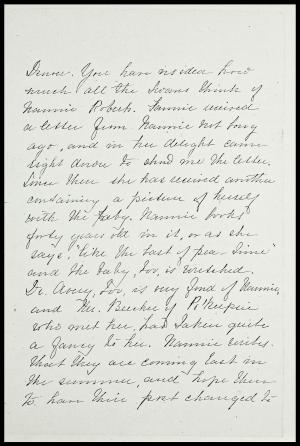 Denver. You have no idea how
much all the Evans think of
Nannie Robert. Fannie received
a letter from Nannie not long
ago, and in her delight came
right down to show me the letter.
Since then she has received another
containing a picture of herself
with the baby. Nannie looks
forty years old in it, or as she
says, "like the last of pea time"
and the baby, too, is wretched.
Dr. Avery, too, is very fond of Nannie,
and Mr. Beecher of P'Keepsie
who met her, had taken quite
a fancy to her. Nannie writes
that they are coming East in
the summer, and hope then
to have their post changed to